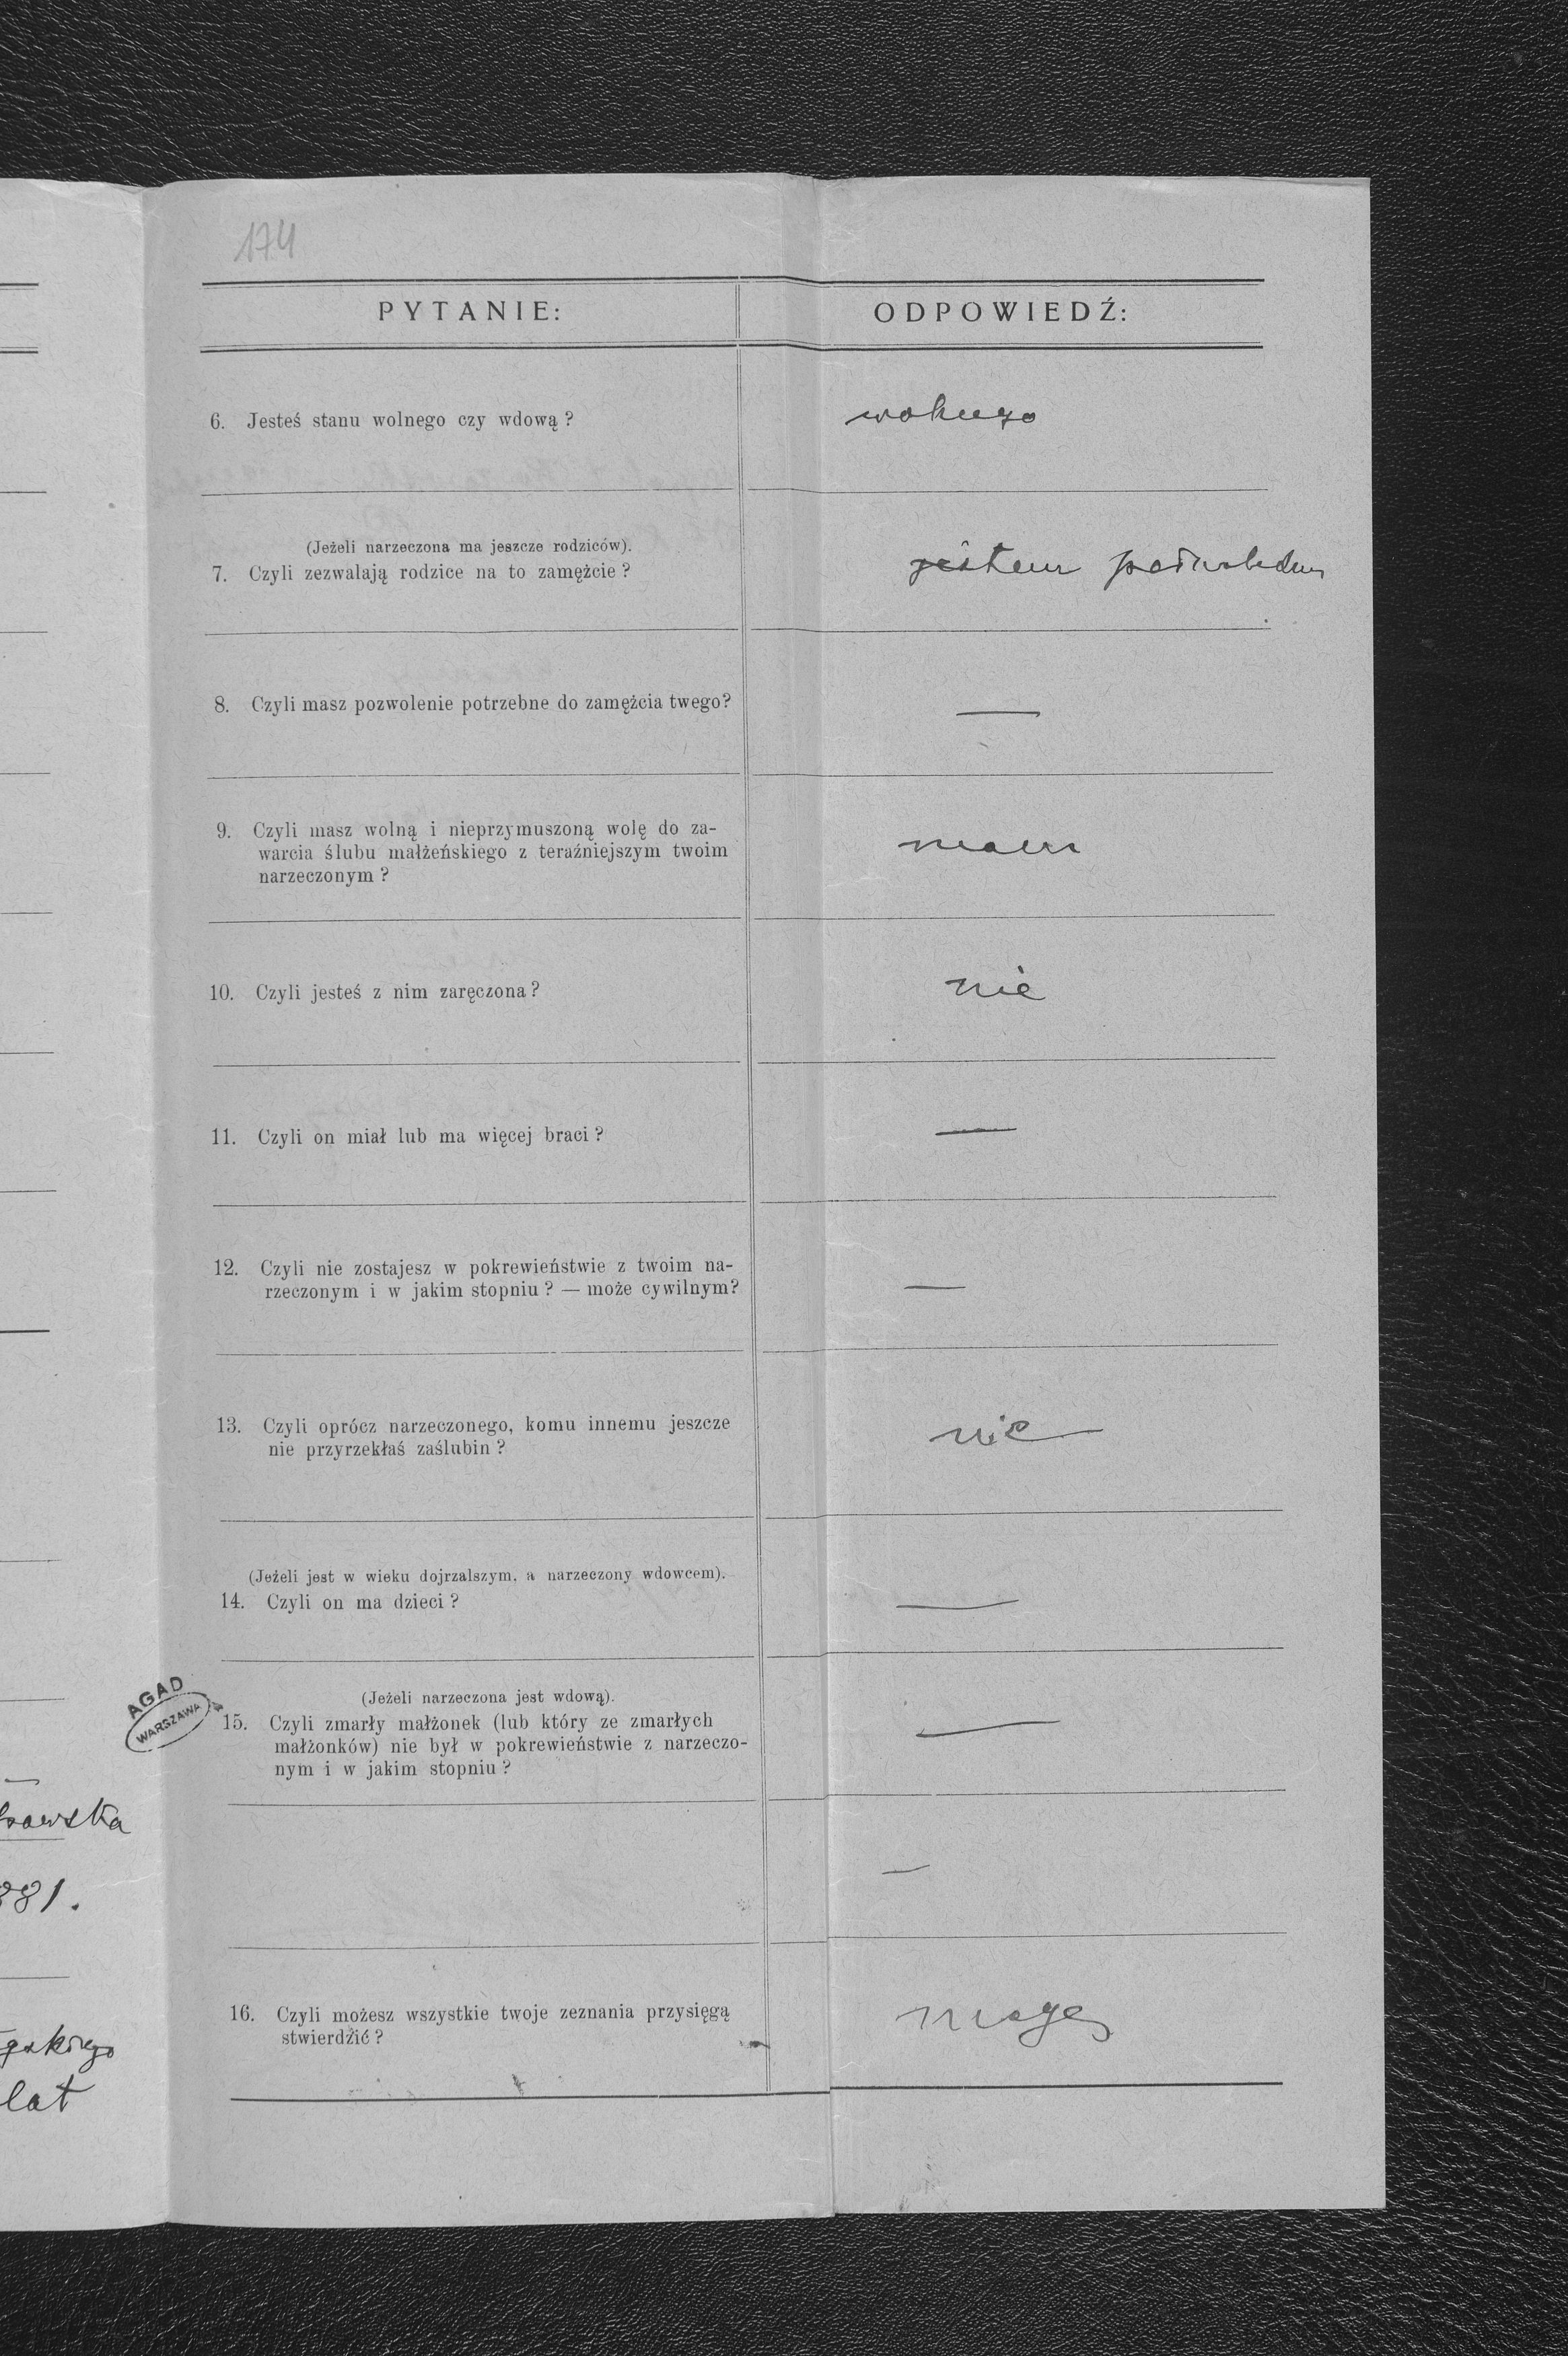 174
PYTANIE:
ODPOWIEDŹ:
6. Jesteś stanu wolnego czy wdową?
wolnego
(Jeżeli narzeczona ma jeszcze rodziców).
7. Czyli zezwalają rodzice na to zamężcie?
jestem
8. Czyli masz pozwolenie potrzebne do zamężcia twego?
—
9. Czyli masz wolną i nieprzymuszoną wolę do za-
warcia ślubu małżeńskiego z teraźniejszym twoim
narzeczonym?
mam
10. Czyli jesteś z nim zaręczona?
nie
11. Czyli on miał lub ma więcej braci?
—
12. Czyli nie zostajesz w pokrewieństwie z twoim na-
rzeczonym i w jakim stopniu? — może cywilnym?
—
13. Czyli oprócz narzeczonego, komu innemu jeszcze
nie przyrzekłaś zaślubin?
nie
(Jeżeli jest w wieku dojrzalszym, a narzeczony wdowcem).
14. Czyli on ma dzieci?
—
AGAD
WARSZAWA
(Jeżeli narzeczona jest wdową).
15. Czyli zmarły małżonek (lub który ze zmarłych
małżonków) nie był w pokrewieństwie z narzeczo-
nym i w jakim stopniu?
—
—
16. Czyli możesz wszystkie twoje zeznania przysięgą
stwierdzić?
mogę
881.
lat